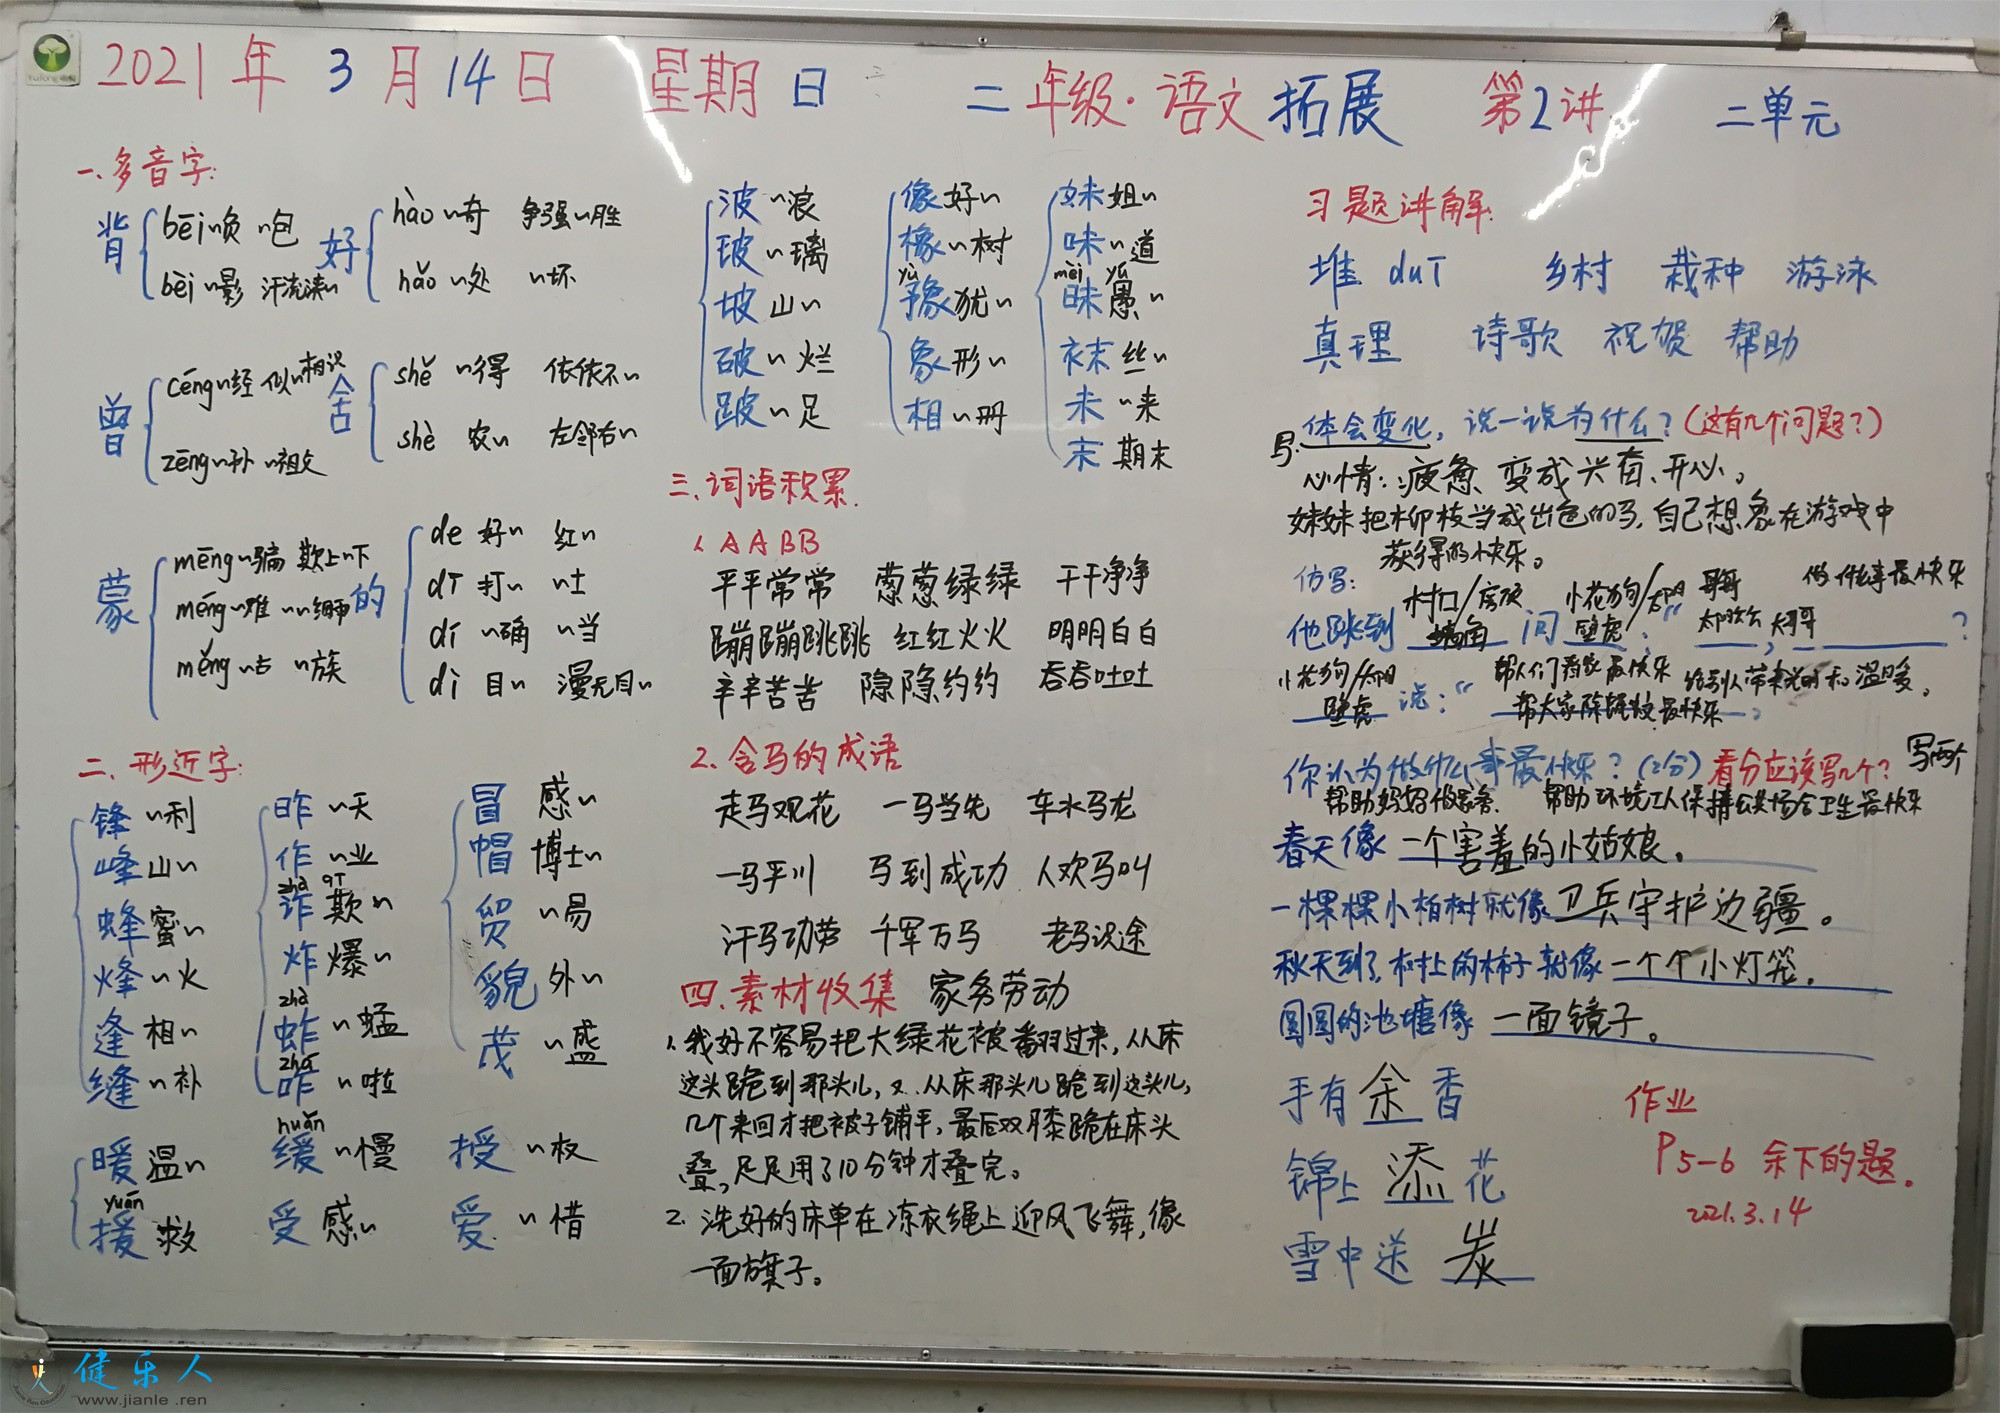 2021年3月14日 星期日 二年级·语文拓展 第2讲 二单元
一.多音字:
背 bēi ~负 ~包
bèi ~影 汗流浃~
好 hào ~奇 争强~胜
hǎo ~处 ~坏
曾 céng ~经 似~相识
zēng ~孙 ~祖父
舍 shě ~得 依依不~
shè 农~ 左邻右~
蒙 mēng ~骗 欺上~下
méng ~难 ~~细雨
měng ~古 ~族
的 de 好~ 红~
dī 打~ ~士
dí ~确 ~当
dì 目~ 漫无目~
二、形近字:
锋 ~利
峰 山~
蜂 蜜~
烽 ~火
逢 相~
缝 ~补
昨 ~天
作 ~业
zhà qī
诈 欺~
炸 爆~
zhà
蚱 ~蜢
zhā
咋 ~啦
冒 感~
帽 博士~
贸 ~易
貌 外~
茂 ~盛
暖 温~
yuán
援 救
huǎn
缓 ~慢
授 ~权
受 感~
爱 ~惜
波 ~浪
玻 ~璃
坡 山~
破 ~烂
跛 ~足
像 好~
橡 ~树
yù
豫 犹~
象 形~
相 ~册
妹 姐~
味 ~道
mèi yú
昧 愚~
袜 丝~
未 ~来
末 期末
三.词语积累.
1. AABB
平平常常 葱葱绿绿 干干净净
蹦蹦跳跳 红红火火 明明白白
辛辛苦苦 隐隐约约 吞吞吐吐
2. 含马的成语
走马观花 一马当先 车水马龙
一马平川 马到成功 人欢马叫
汗马功劳 千军万马 老马识途
四.素材收集 家务劳动
1.我好不容易把大绿花被翻过来,从床
这头跪到那头儿,又..从床那头儿跪到这头儿,
几个来回才把被子铺平,最后双膝跪在床头
叠,足足用了10分钟才叠完。
2. 洗好的床单在凉衣绳上迎风飞舞,像
一面旗子。
习题讲解:
堆 duī 乡村 栽种 游泳
真理 诗歌 祝贺 帮助
写. 体会变化,说一说为什么?(这有几个问题?)
心情:疲惫 变成兴奋、开心。
妹妹把柳枝当成出色的马,自己想象在游戏中
获得的快乐。
仿写: 村口/房顶 小花狗/太阳 哥哥 做什么事最快乐
他跳到 墙角 问 壁虎:“ 太阳公公,大哥哥 ?
小花狗/太阳 帮人们看家最快乐 给别人带来光明和温暖。
壁虎 说:“ 帮大家除蚊最快乐
你认为做什么事最快乐?(2分)看分应该写几个?写两个
帮助妈妈做家务. 帮助环境工人保持公共场合卫生最快乐
春天像 一个害羞的小姑娘。
一棵棵小柏树就像 卫兵守护边疆。
秋天到了,树上的柿子就像 一个个小灯笼.
圆圆的池塘像 一面镜子。
手有余香
锦上添花
雪中送炭
作业
P5-6 余下的题。
2021.3.14
健乐人
www.jianle.ren